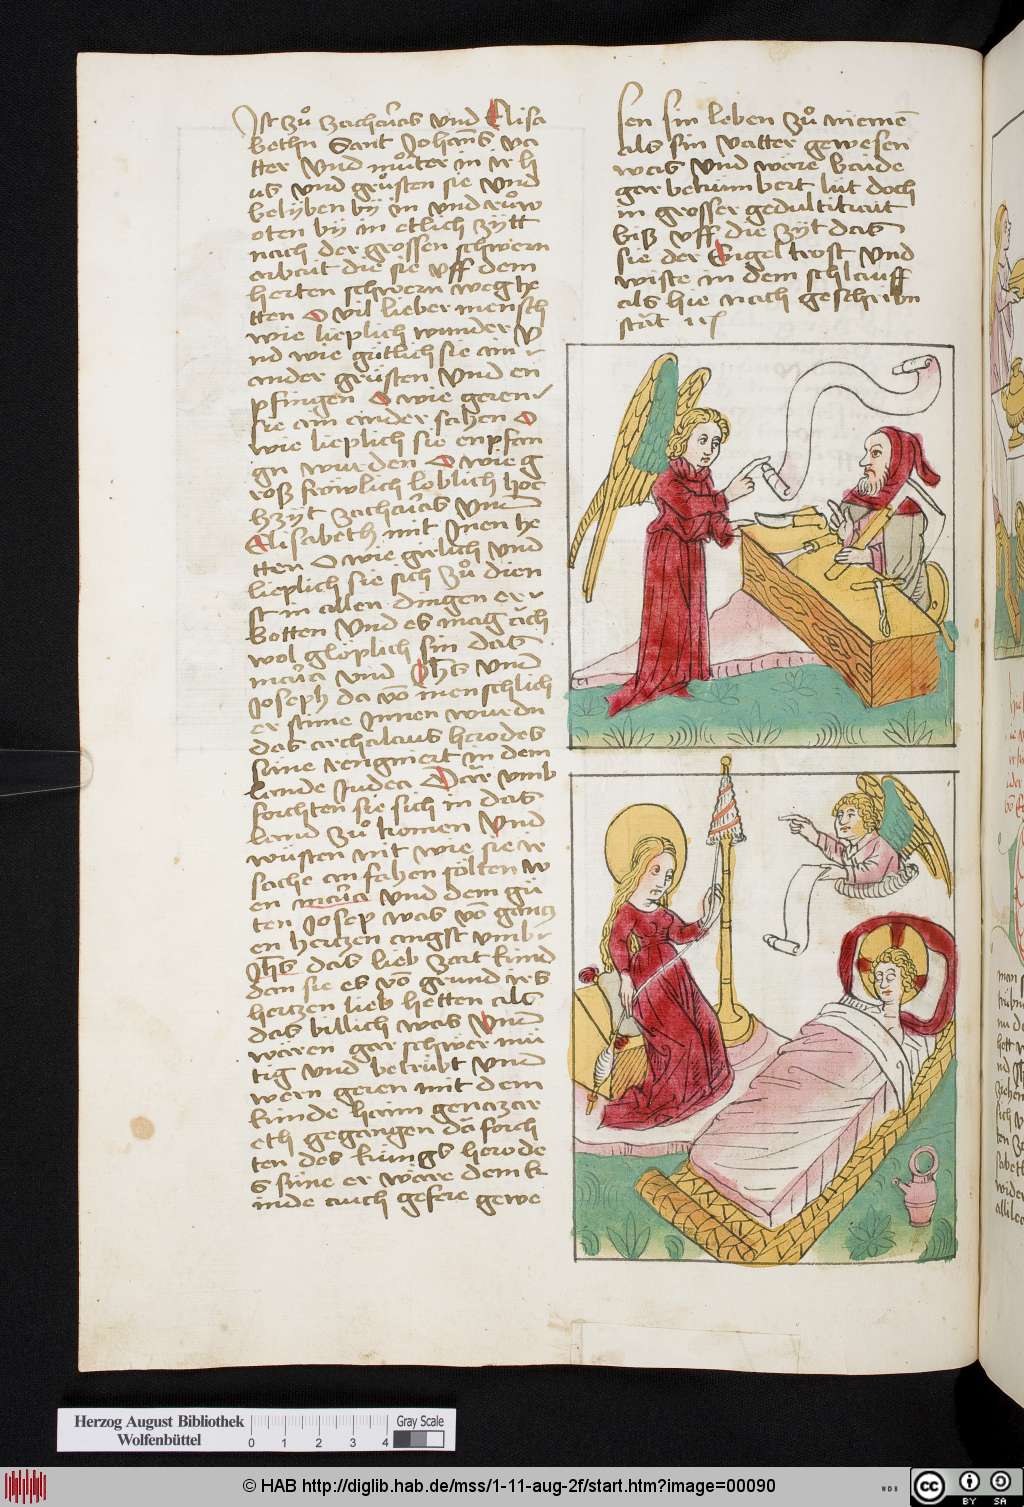 Ist zuͦ zacharias vnd Elisa
bethn Sant Johans va
tter Vnd muͦter in ir h
us vnd gruͤsten sie Vnd
belyben by in vnd ruͦw
oten by in etlich zytt
nach der grossen schwern
arbait die sie vff dem
herten schwern weg he
tten O vil lieber mensch
wie lieplich wunder v
nd wie guͤtlich sie ain
ander gruͤsten Vnd en
pfingen O wie geren
sie ain ander sahen O
wie lieplich sie enpfan
gn wurden O wie g
roß froͤwlich loblich hoc
hzyt zacharias Vnd
Elisabeth mit Jnen he
tten O wie guͤtlich Vnd
lieplich sie sich zuͦ dien
st in allen dingen er
botten Vnd es mag ouch
wol gloͤplich sin das
maria vnd Jhs Vnd
Joseph da vō menschlich
er stime Jnnen wurdn
das archalaus herodes
sune rengniert in dem
lande Judea Dar vmb
forchten sie sich in das
land zuͦ komen Vnd
wuͤsten nit wie sie ir
sache an fahen soͤlten w
en maria vnd dem guͤ
ten Josep was vō gantz
en hertzen angst vmb
Jhs das lieb zart kind
dan sie es vō grund irs
hertzen lieb hetten als
das billich was Vnd
waren gar schwer muͤ
tig vnd betruͤbt vnd
wern geren mit dem
kinde haim genazar
eth gegangen da forch
ten des kungs herode
s sune er wäre dem k
inde auch gefere gewe
sen sin leben zuͦ niemē
als sin vatter gewesen
was Vnd were baide
gar bekuͤmbert luͤt doch
in grosser gedultikait
biß vff die zyt das
sie der Engel trost Vnd
wiste in dem schlauff
als hie nach geschribn
stāt
Herzog August Bibliothek
Wolfenbüttel
0 1 2 3 4
Gray Scale
© HAB http://diglib.hab.de/mss/1-11-aug-2f/start.htm?image=00090
WDB
cc BY SA